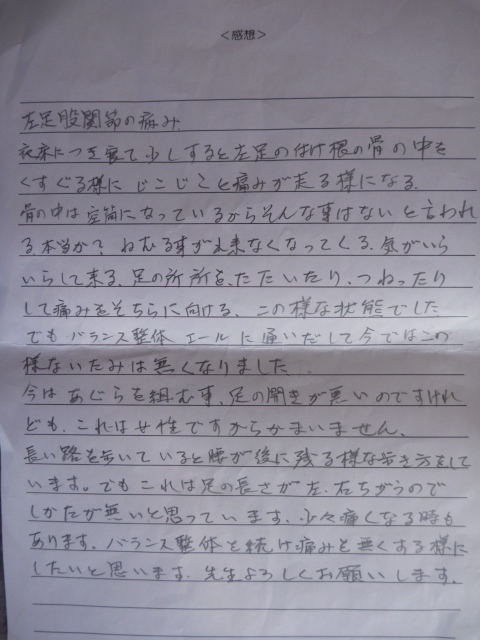 <感想>
左足股関節の痛み
夜床につき寝て少しすると左足の付け根の骨の中を
くすぐる様に じこじこと痛みが走る様になる.
骨の中は空筒になっているからそんな事はないと言われ
る.本当か? ねむる事が出来なくなってくる.気がいら
いらして来る.足の所所を、たたいたり、つねったり
して痛みをそちらに向ける、この様な状態でした
でも バランス整体 エールに通いだして今ではこの
様ないたみは無くなりました.
今は あぐらを組む事、足の開きが悪いのですけれ
ども、これは女性ですからかまいません、
長い路を歩いていると腰が後に残る様な歩き方をして
います。でもこれは足の長さが左、右ちがうので
しかたが無いと思っています、少々痛くなる時も
あります、バランス整体を続け痛みを無くする様に
したいと思います.先生よろしくお願いします.